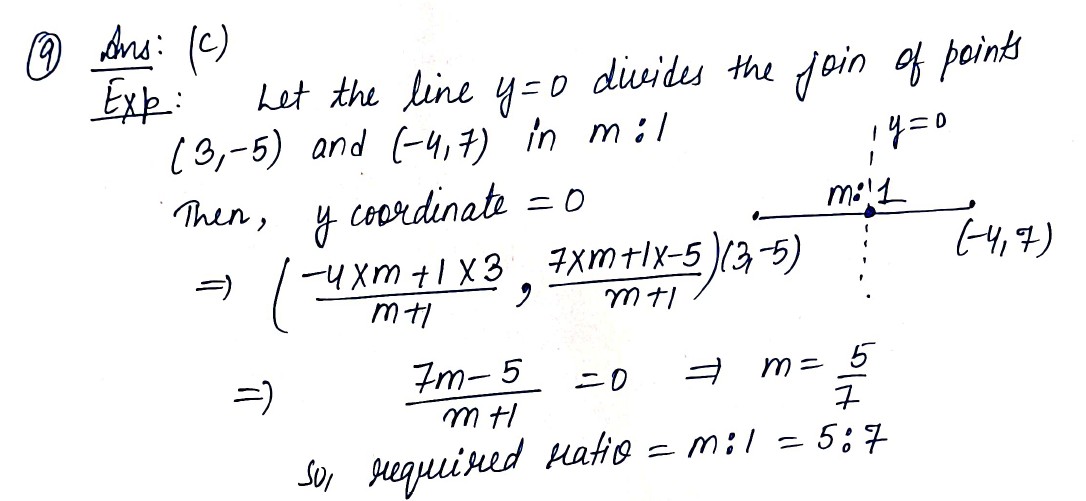 ⑨ Ans: (C)
Exp: Let the line y=0 divides the join of points
(3,-5) and (-4,7) in m:1
y=0
Then, y coordinate = 0
m:1
(-4,7)
⇒ ( -4×m+1×3 / m+1 , 7×m+1×-5 / m+1 ) (3,-5)
⇒ 7m-5 / m+1 = 0 ⇒ m = 5/7
So, required ratio = m:1 = 5:7